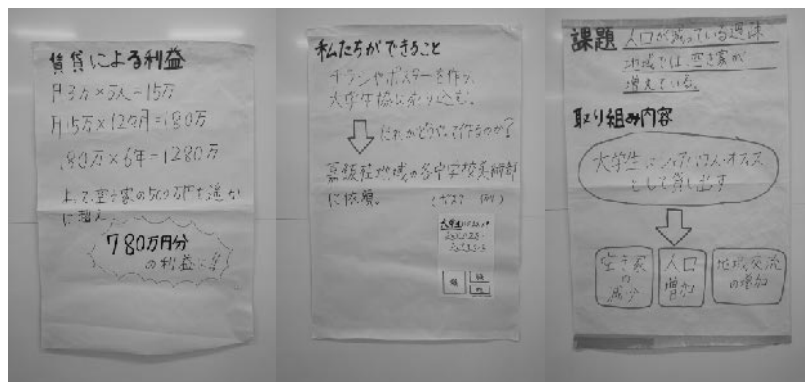 賃貸による利益
月3万×5人=15万
月15万×12ヶ月=180万
180万×6年=1280万
よって空き家の500万円を遥か
に超え
780万円分
の利益に
私たちができること
チラシやポスターを作り、
大学生協に売り込む。
だれがどうやって作るのか?
地域の各中学校美術部
に依頼。
大学生
課題 人口が減っている過疎
地域では、空き家が
増えている。
取り組み内容
大学生にシェアハウス・オフィス
として貸し出す
空き家
の
減少
人口
増加
地域交流
の増加